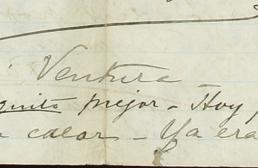 Ventura
quito mejor - Hoy
calor - Ya era